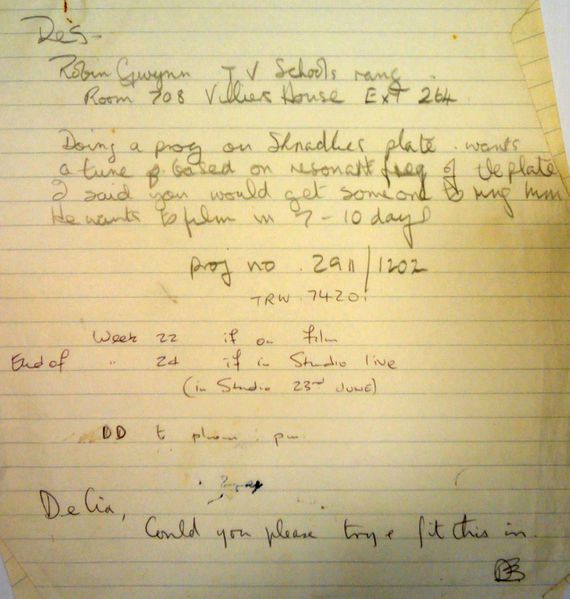 Des -
Robin Gwynn TV Schools rang.
Room 708 Villiers House Ext 264.
Doing a prog on Shradhes plate. wants
a tune based on resonant freq of the plate
I said you would get someone to ring him
He wants to film in 7 - 10 days
prog no. 2911/1202
TRW 7420
Week 22 if on film
End of " 24 if in Studio live
(in Studio 23rd JUNE)
DD to phone pm
Delia,
Could you please try & fit this in.
DB